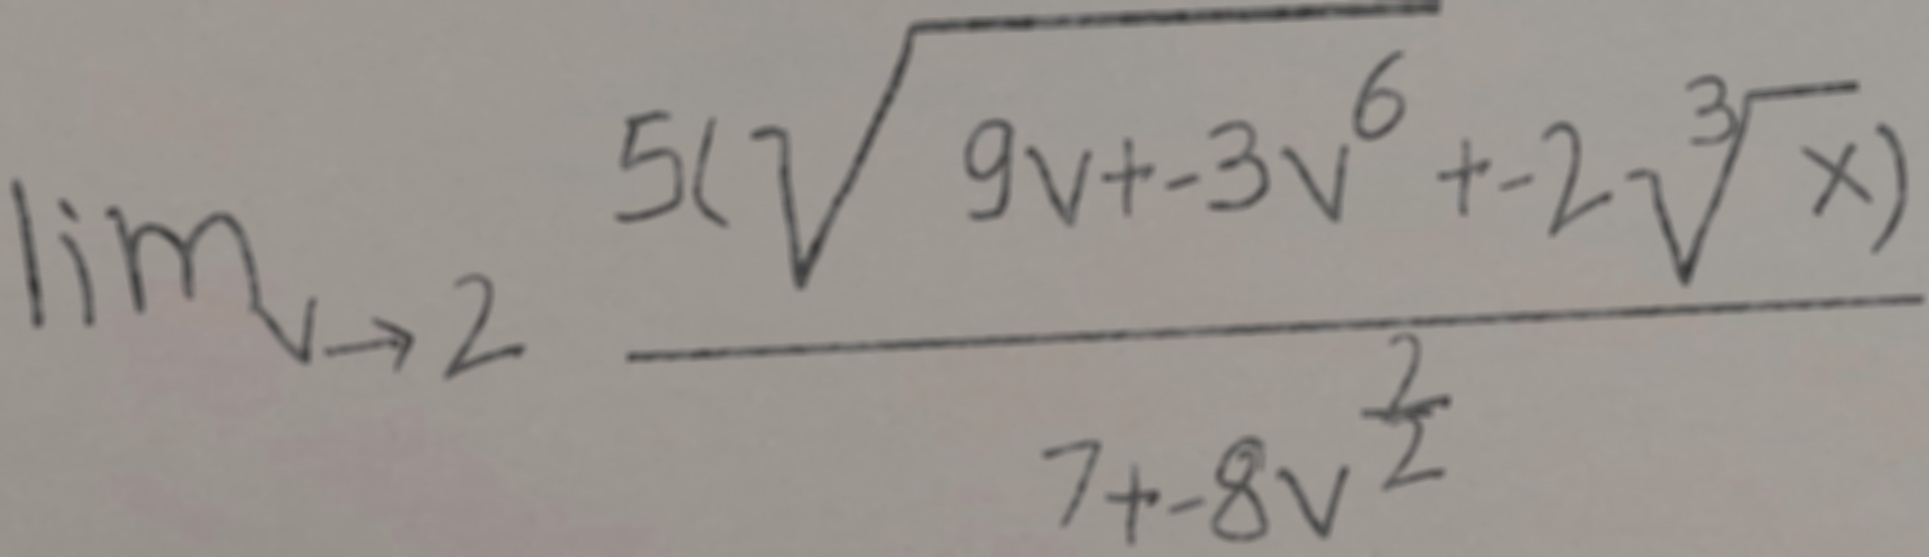 \lim_{v \to 2} \frac{5(\sqrt{9v+-3v^{6}}+-2\sqrt[3]{x})}{7+-8v^{\frac{2}{2}}}